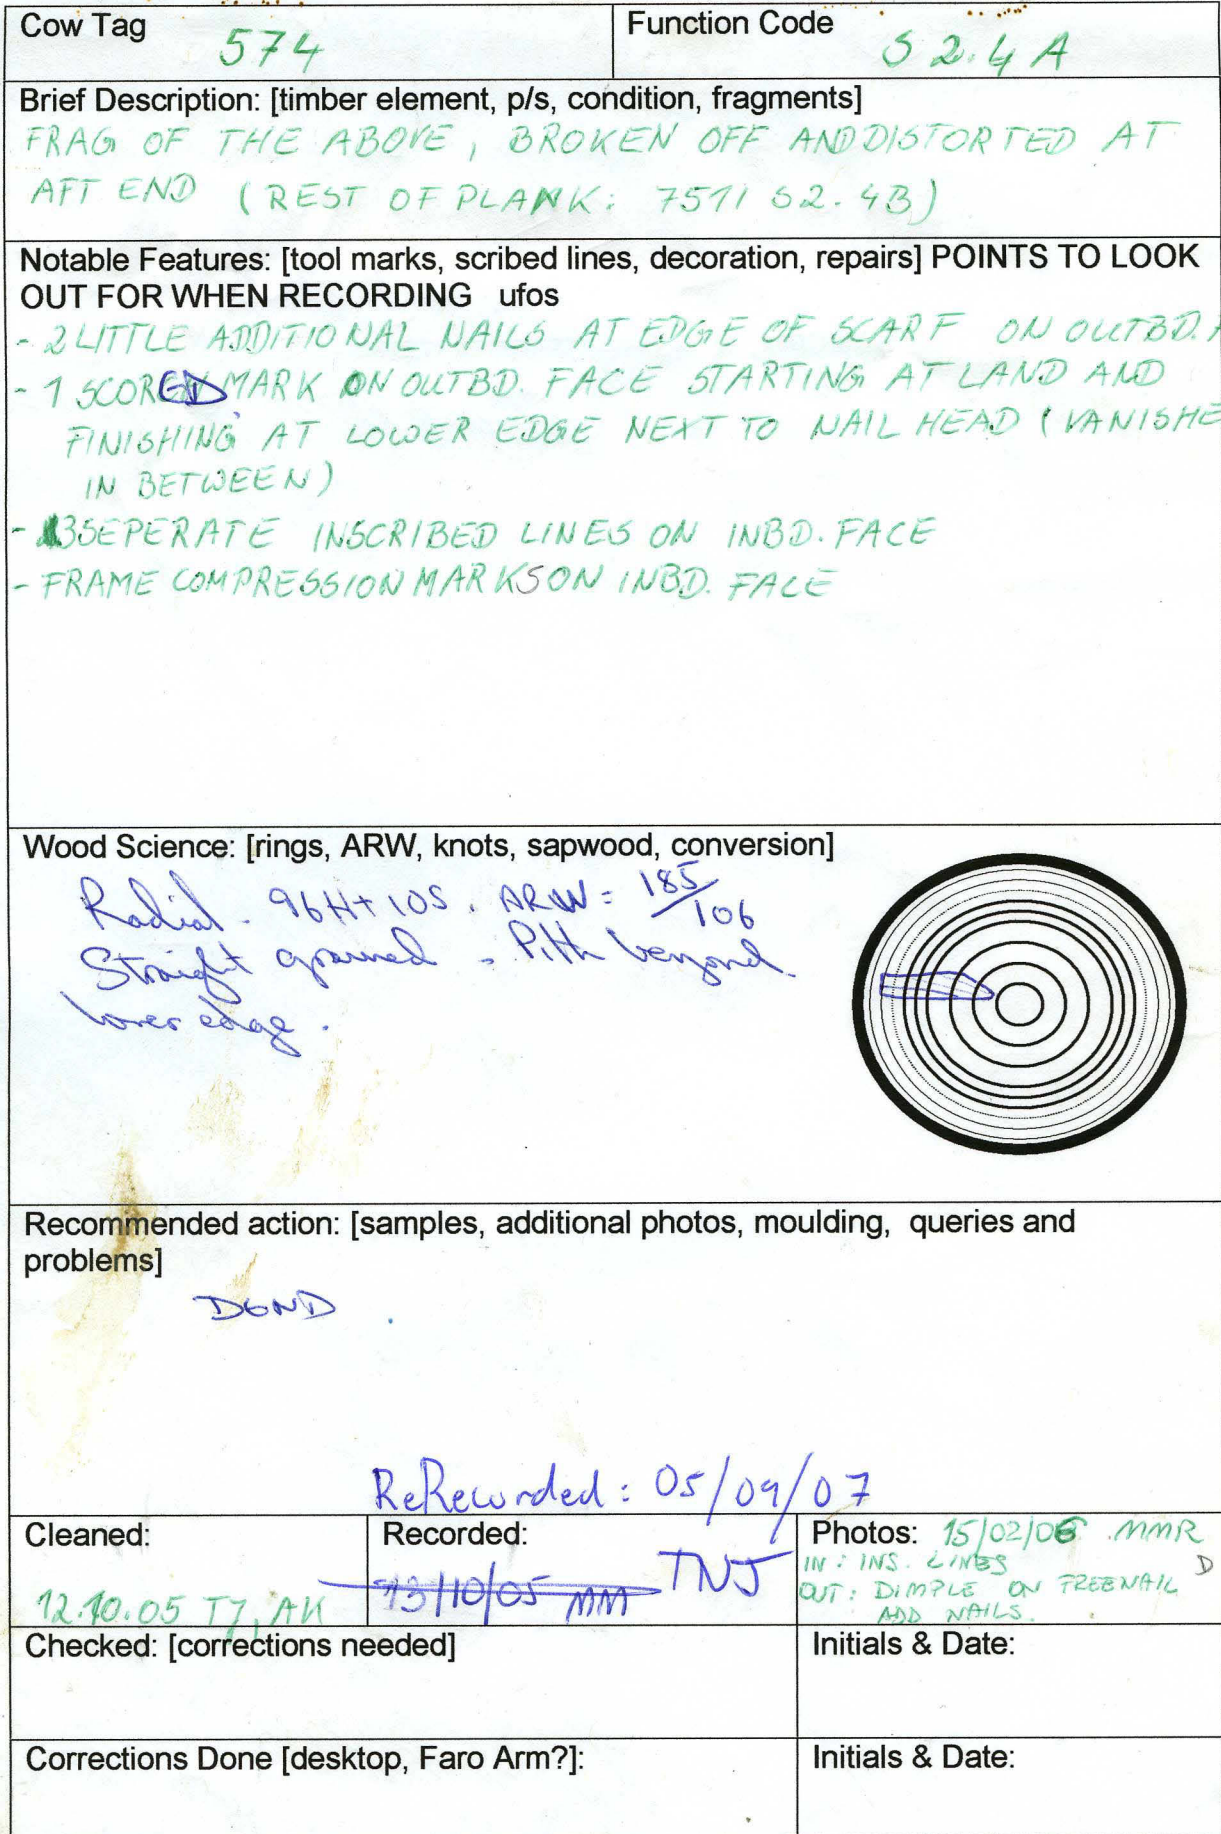 Cow Tag 574
Function Code S2.4A
Brief Description: [timber element, p/s, condition, fragments]
FRAG OF THE ABOVE, BROKEN OFF AND DISTORTED AT
AFT END (REST OF PLANK: 751/ S2.4B)
Notable Features: [tool marks, scribed lines, decoration, repairs] POINTS TO LOOK
OUT FOR WHEN RECORDING ufos
- 2 LITTLE ADDITIONAL NAILS AT EDGE OF SCARF ON OUTBD.
- 1 SCORED MARK ON OUTBD. FACE STARTING AT LAND AND
FINISHING AT LOWER EDGE NEXT TO NAIL HEAD (VANISHE
IN BETWEEN)
- 3 SEPERATE INSCRIBED LINES ON INBD. FACE
- FRAME COMPRESSION MARKS ON INBD. FACE
Wood Science: [rings, ARW, knots, sapwood, conversion]
Radial. 96H+10S. ARW = 185/106
Straight grained. Pith beyond
lower edge.
Recommended action: [samples, additional photos, moulding, queries and
problems]
DGND
ReRecorded: 05/09/07
Cleaned:
12.10.05 TJ, AK
Recorded:
13/10/05 MM TNJ
Photos: 15/02/06 MMR
IN: INS. LINES D
OUT: DIMPLE ON TREENAIL
ADD NAILS.
Checked: [corrections needed]
Initials & Date:
Corrections Done [desktop, Faro Arm?]:
Initials & Date: